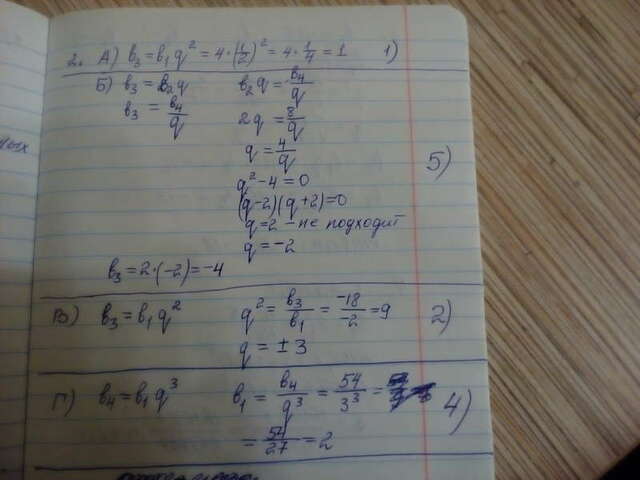 2. А) b₃ = b₁q² = 4·(1/2)² = 4·1/4 = 1 1)
Б) b₃ = b₂q b₂q = b₄/q
b₃ = b₄/q 2q = 8/q
q = 4/q
q² - 4 = 0 5)
(q-2)(q+2)=0
q = 2 - не подходит
q = -2
b₃ = 2·(-2) = -4
В) b₃ = b₁q² q² = b₃/b₁ = -18/-2 = 9 2)
q = ± 3
Г) b₄ = b₁q³ b₁ = b₄/q³ = 54/3³ = 4)
= 54/27 = 2